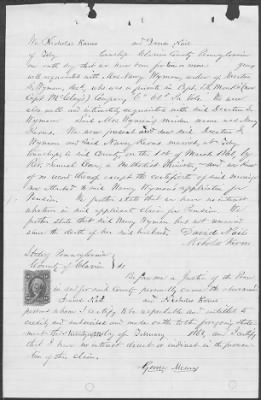 We Nicholas Karns and David Kail
of Toby Township Clarion County Pennsylvania
on oath say that we have been for
well acquainted with Mrs Nancy Wyman, widow of
Wyman, dec'd, who was a private in Capt.
Company "C" Vols. We were
also well and intimately acquainted with said
Wyman. Said Mrs Wyman's maiden name was Nancy
Karns. We were present and saw said
Wyman and said Nancy Karns married, at Toby
township in said County on the 1st of March 1861, by
Rev. a Methodist Minister, and we know
of no record thereof except the certificate of said marriage
attached to said Nancy Wyman's application for
Pension. We further state that we have no interest
whatever in said applicant's claim for Pension. We
further state that said Nancy Wyman has not married
since the death of her said husband. David Kail
Nicholas Karns
State of Pennsylvania
County of Clarion ss
Before me a Justice of the Peace
in and for said County personally came the above named
David Kail and Nicholas Karns
persons whom I certify to be respectable and entitled to
credit, and subscribed and made oath to the foregoing state-
ment this day of February 1864, and I certify
that I have no interest direct or indirect in the prosecu-
tion of this claim.
George Means